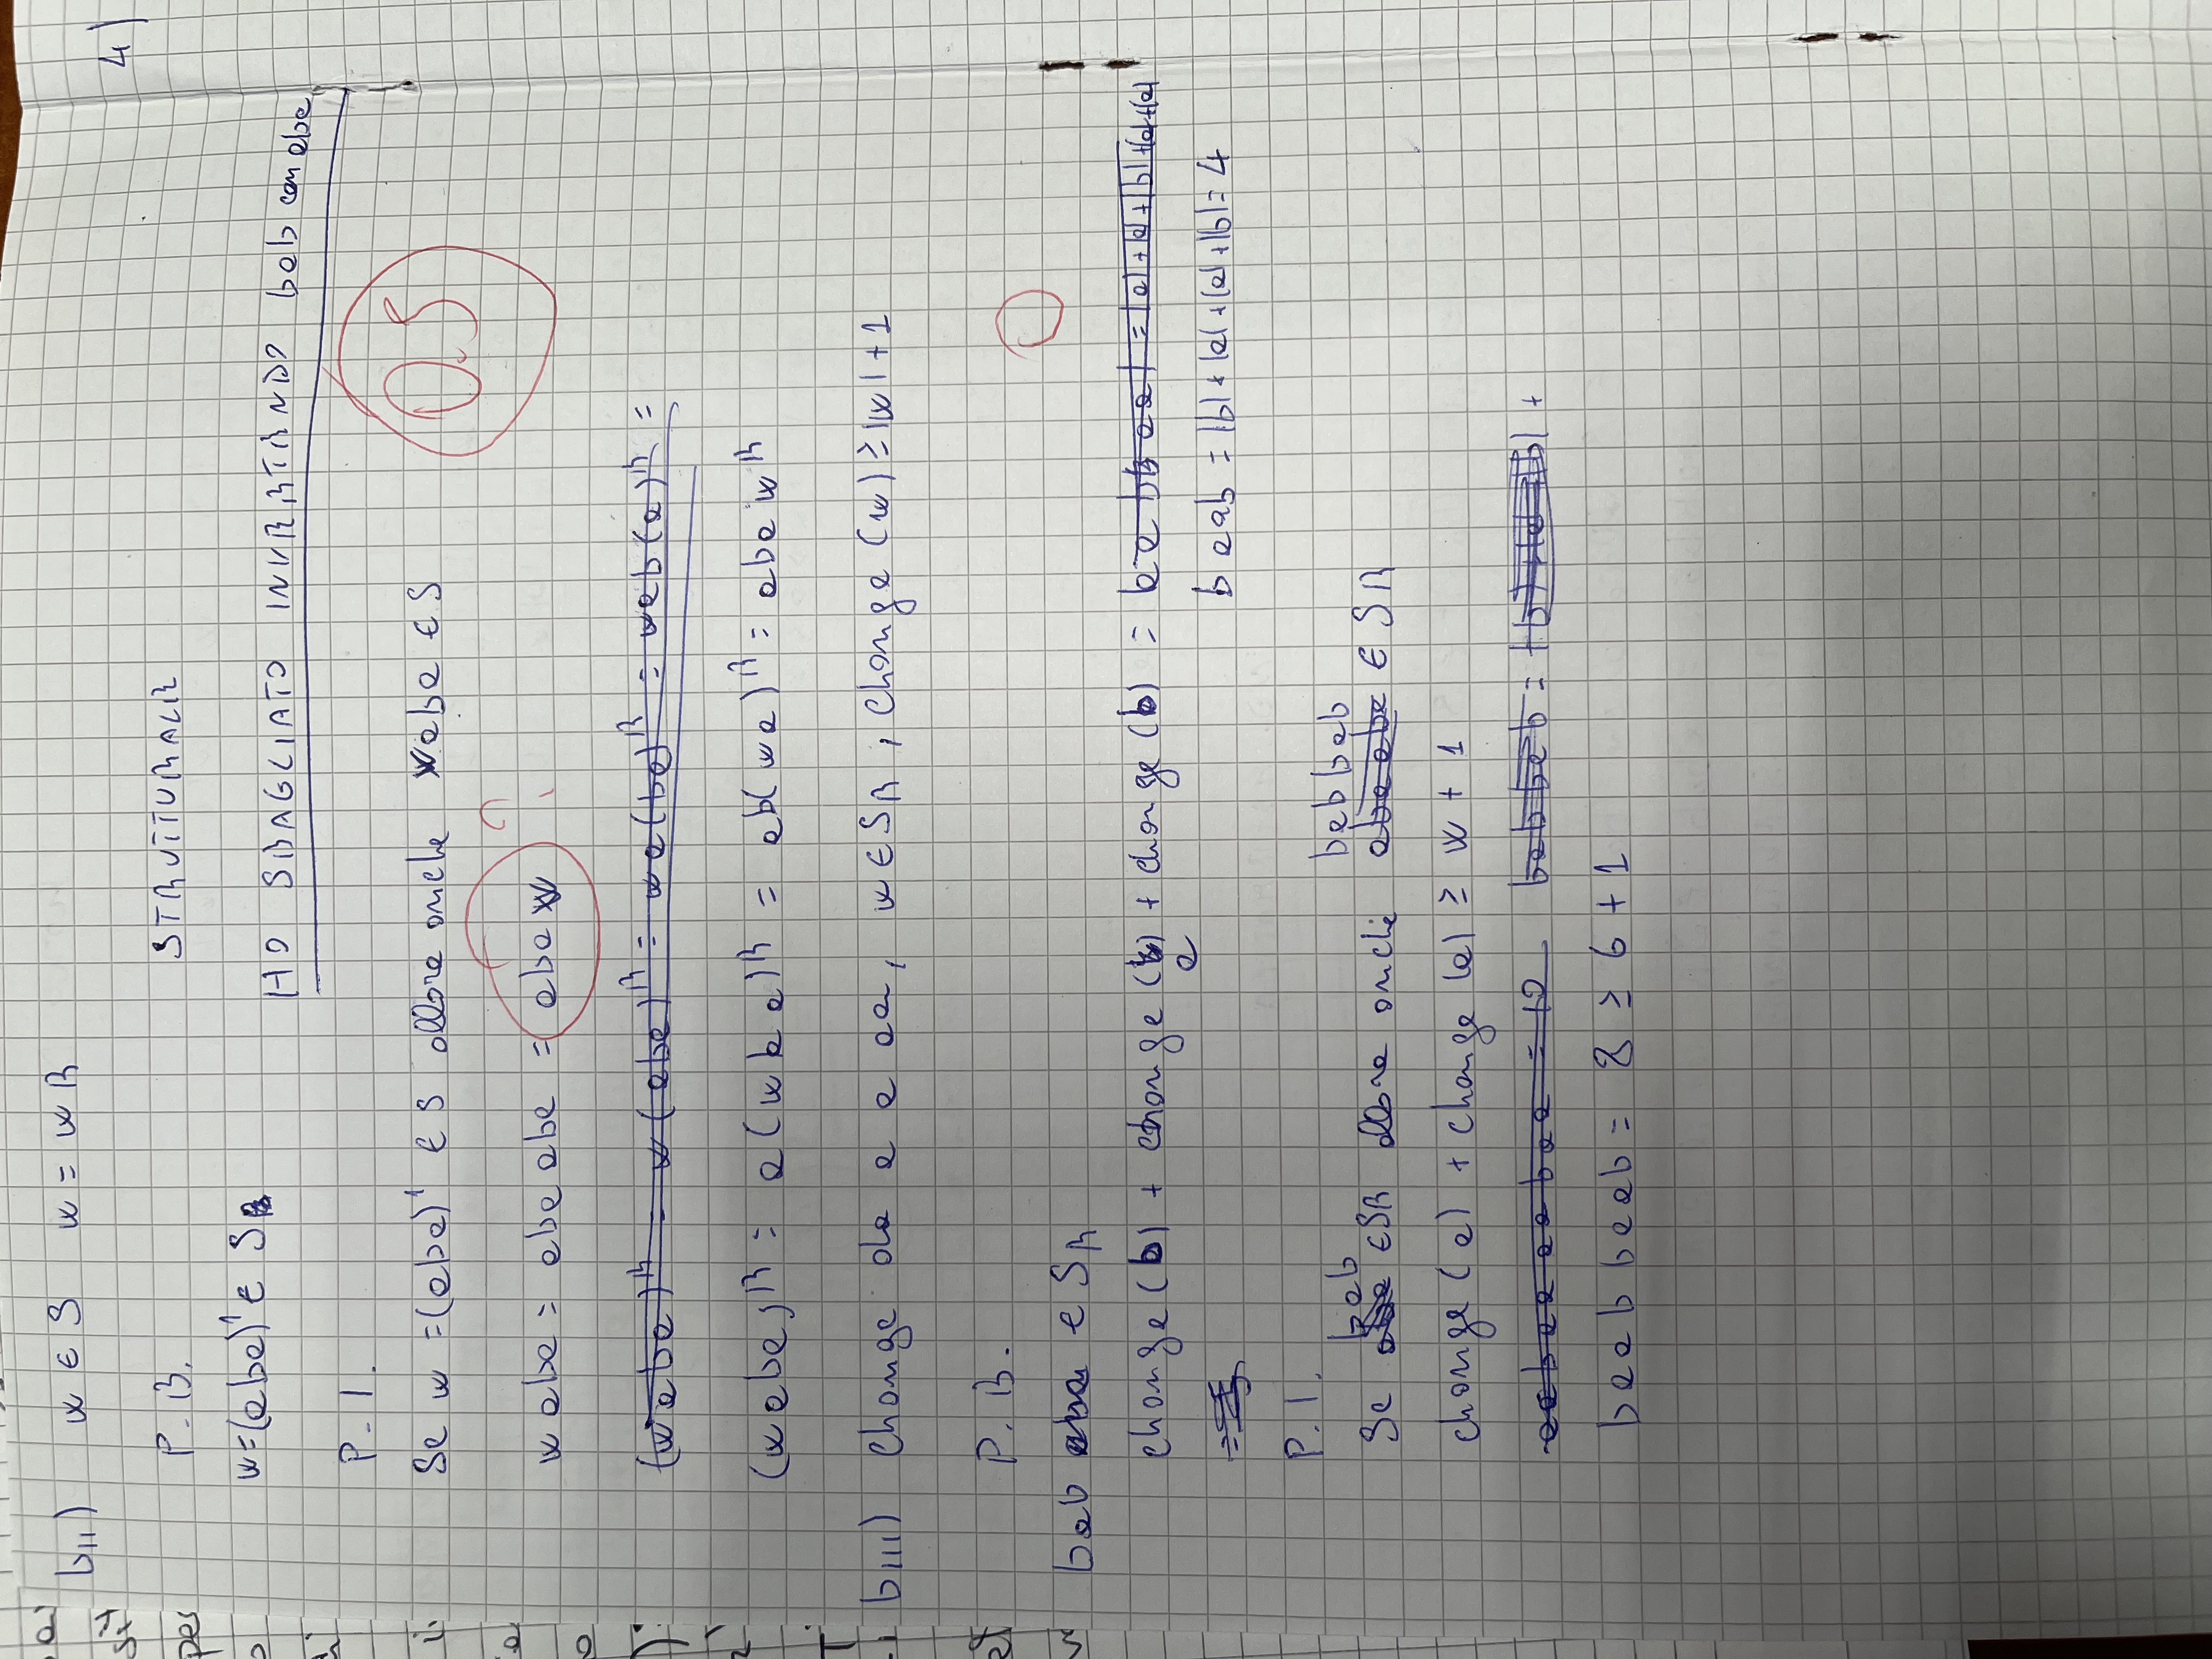 bii) w ∈ S w = wR
4)
P.B. STRUTTURALE
w=(aba)¹ ∈ S
HO SBAGLIATO INVERTENDO bab con aba
P.I.
0.5
Se w =(aba)¹ ∈ S allora anche waba ∈ S
w aba = aba aba = aba w ?
(w aba)ᴿ = w (aba)ᴿ = wa(ba)ᴿ = wab(a)ᴿ =
(w aba)ᴿ = a(w ba)ᴿ = ab(wa)ᴿ = aba wᴿ
biii) change da a a aa, w ∈ SR, change (w) ≥ |w| + 1
P.B.
bab aba ∈ SR
change (b) + change (a) + change (b) =
baab = |b| + |a| + |a| + |b| = 4
P.I.
bab babbab
Se aba ∈ SR allora anche abaaba ∈ SR
change (a) + change (a) ≥ w + 1
aabaaaabaa = 10 babbab =
baabbaab = 8 ≥ 6 + 1